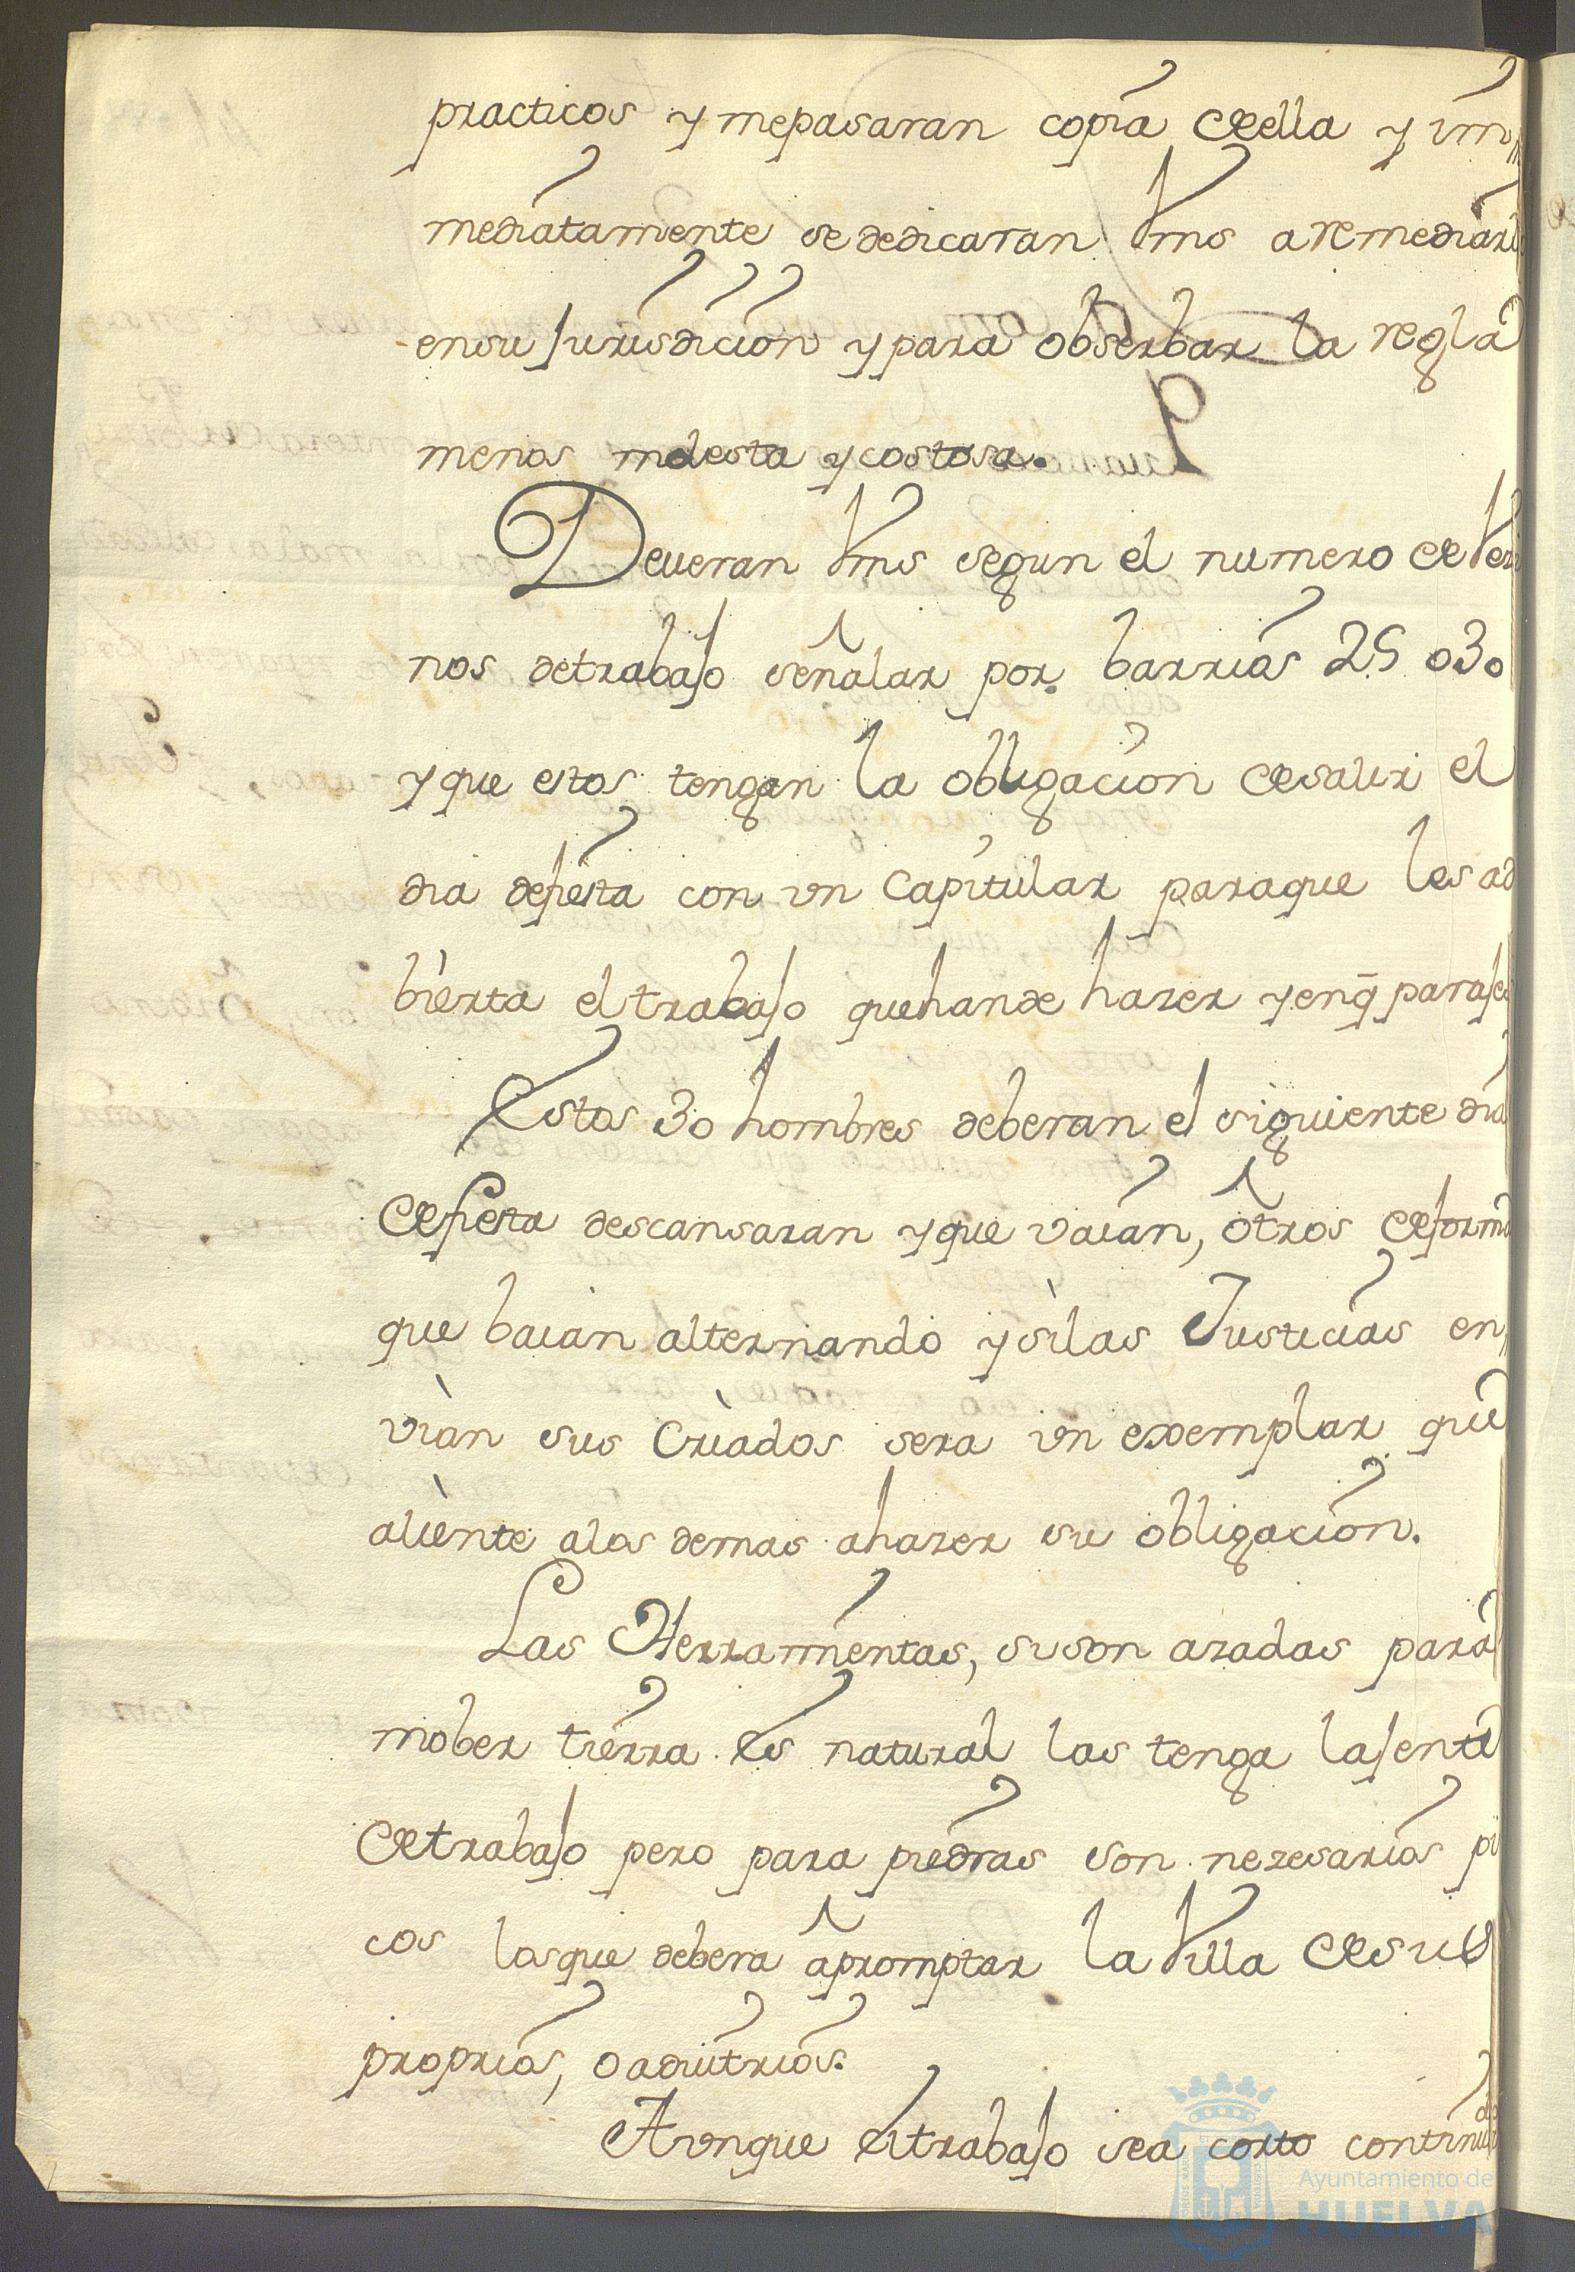 practicos y mepasaran copia deella y im
mediatamente se dedicaran Vms a remediarl
ensu Jurisdicion y para obserbar la regla
menos molesta y costosa.
Deveran Vms segun el numero de Veci
nos detrabajo señalar por barrios 25 o 30
y que estos tengan la obligacion desalir el
dia defiesta con vn Capitular paraque les ad
bierta el trabajo quehande hazer y enq̃ paraje
Estos 30 hombres deberan el siguiente dia
defiesta descansaran y que vaian, otros deforma
que baian alternando y silas Justicias en
vian sus Criados sera vn exemplar que
aliente alos demas ahazer su obligacion.
Las Herramientas, sison azadas para
mober tierra es natural las tenga lajente
detrabajo pero para piedras son nezesarios pi
cos losque debera apromptar la Villa desus
proprios, o aduitrios.
Avnque eltrabajo sea corto continuado
Ayuntamiento de
HUELVA